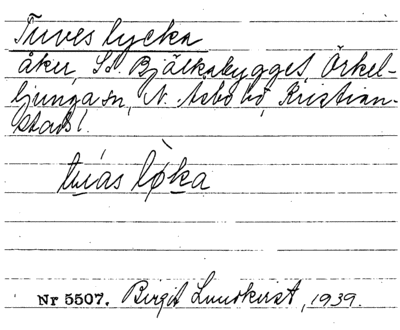 Tuves lycka
åker, St. Bjälkabygget, Örkel-
ljunga sn, N. Åsbo hd, Kristian-
stads l.
tuás lø̀ka
Nr 5507. Birgit Lundkvist, 1939.